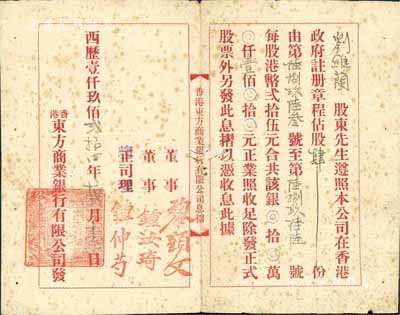 劉維蘭 股東先生遵照本公司在香港
政府註册章程佔股肆份
由第陸捌玖陸叁號至第陸捌玖陸陸號
每股港幣弍拾伍元合共該銀〇拾〇萬
〇仟壹佰〇拾〇元正業照收足除發正式
股票外另發此息摺以憑收息此據
香港東方商業銀行有限公司息摺
董事
董事 鍾汝琦
正司理 鍾仲芍
西歷壹仟玖佰弍拾四年 月 日
香港東方商業銀行有限公司發